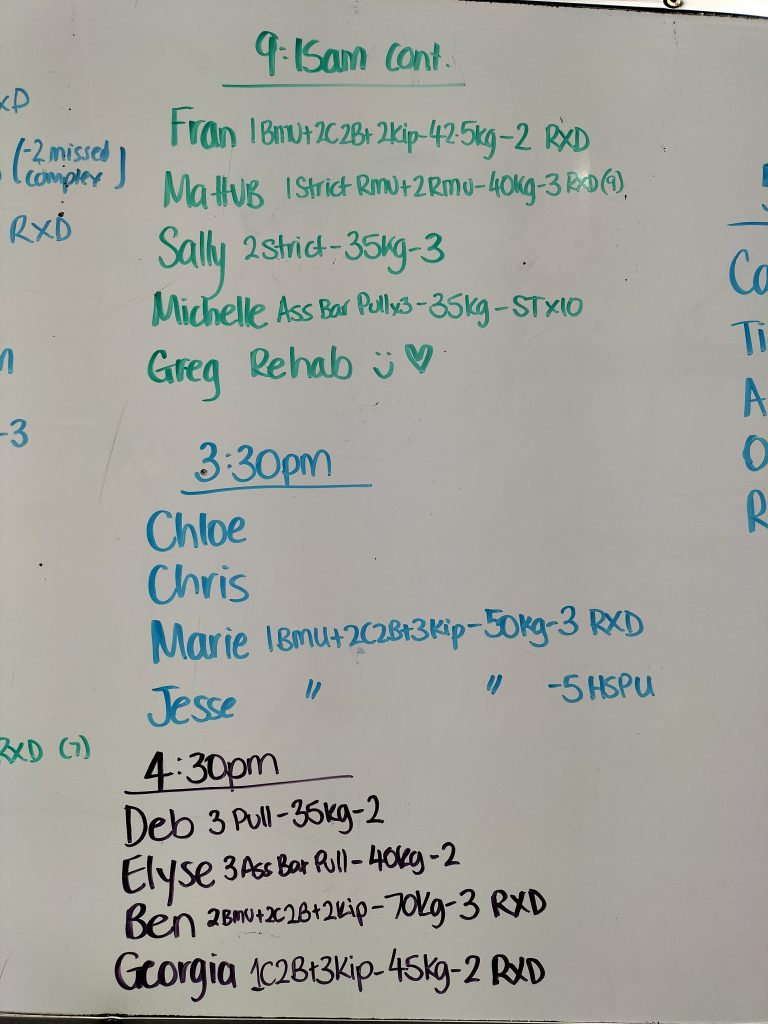 9:15am cont.
Fran 1BMU+2C2B+2Kip-42.5kg-2 RXD
MattVB 1Strict RMU+2RMU-40kg-3 RXD(9)
Sally 2Strict-35kg-3
Michelle Ass Bar Pullx3-35kg-STx10
Greg Rehab ü ♡
3:30pm
Chloe
Chris
Marie 1BMU+2C2B+3Kip-50kg-3 RXD
Jesse " " -5 HSPU
4:30pm
Deb 3 Pull-35kg-2
Elyse 3 Ass Bar Pull-40kg-2
Ben 2BMU+2C2B+2Kip-70kg-3 RXD
Georgia 1C2B+3Kip-45kg-2 RXD
(-2 missed
complex)
RXD
-3
RXD (7)